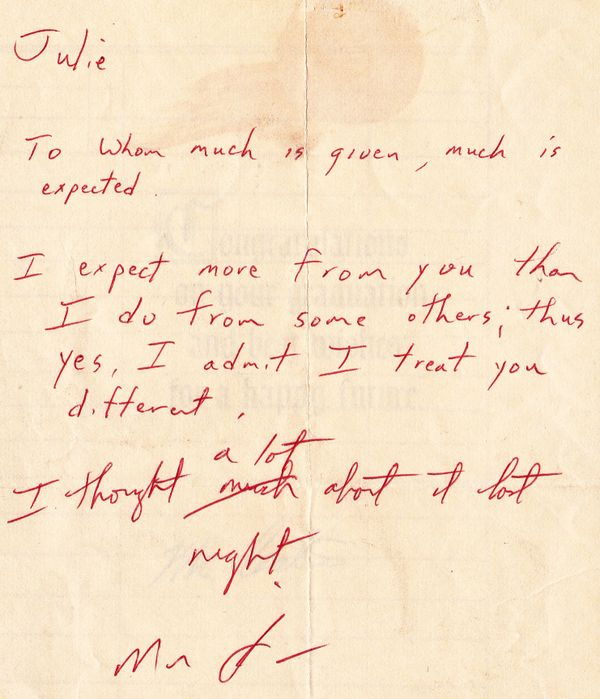 Julie
To whom much is given, much is
expected
I expect more from you than
I do from some others; thus
yes, I admit I treat you
different.
a lot
I thought much about it last
night.
Mr
Congratulations
on your graduation
and best wishes
for a happy future